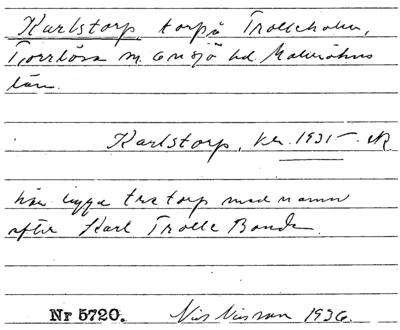 Karlstorp, torp å Trolleholm,
Torrlösa sn. Onsjö hd. Malmöhus
län.
Karlstorp, kr. 1931
här ligga tre torp med namn
efter Karl Trolle Bonde.
Nr 5720. Nils Nilsson 1936.